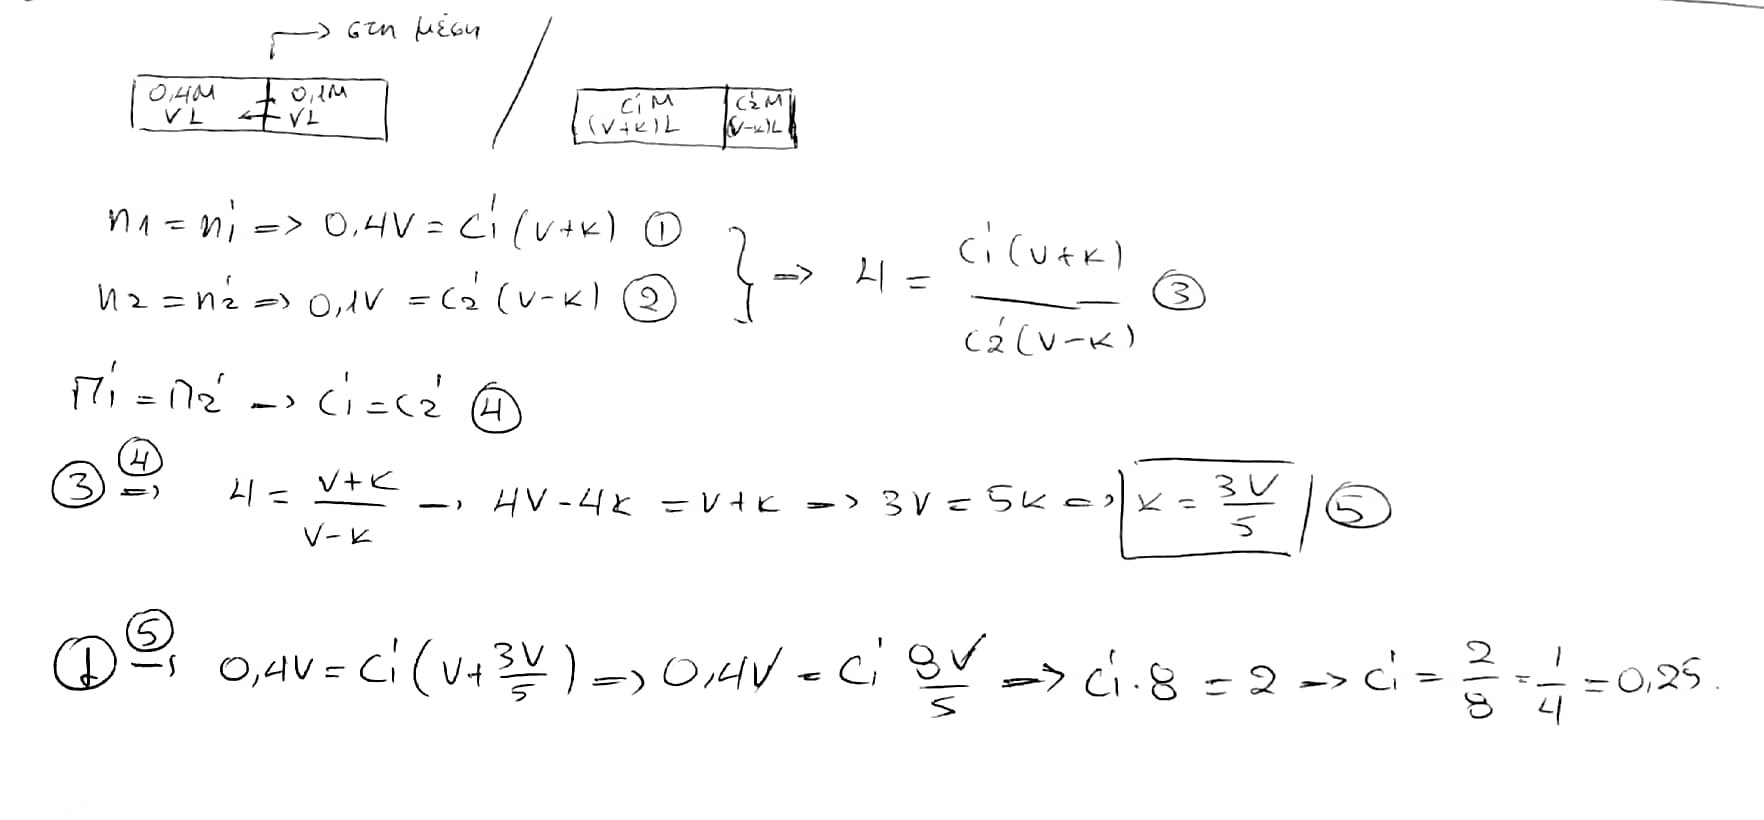 → στη μέση
0,4M 0,1M
VL VL
C1'M C2'M
(V+κ)L (V-κ)L
n1 = n1' => 0,4V = C1'(V+κ) ①
n2 = n2' => 0,1V = C2'(V-κ) ② } => 4 = C1'(V+κ) / C2'(V-κ) ③
Π1' = Π2' -> C1' = C2' ④
③ ④=> 4 = V+κ / V-κ -> 4V-4κ = V+κ => 3V = 5κ => κ = 3V/5 ⑤
① ⑤=> 0,4V = C1'(V+3V/5) => 0,4V = C1' 8V/5 => C1'·8 = 2 -> C1' = 2/8 = 1/4 = 0,25.